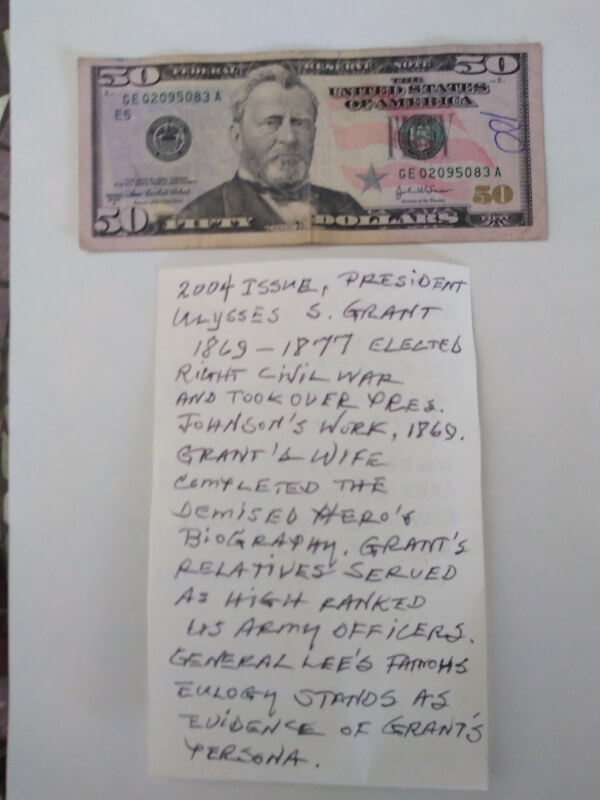 50 FEDERAL RESERVE NOTE 50
THE
UNITED STATES
OF AMERICA
GE 02095083 A
E5
GE 02095083 A
50
50 FIFTY DOLLARS
2004 ISSUE, PRESIDENT
ULYSSES S. GRANT
1869-1877 ELECTED
RIGHT CIVIL WAR
AND TOOK OVER PRES.
JOHNSON'S WORK, 1869.
GRANT'S WIFE
COMPLETED THE
DEMISED HERO'S
BIOGRAPHY. GRANT'S
RELATIVES SERVED
AS HIGH RANKED
US ARMY OFFICERS.
GENERAL LEE'S FAMOUS
EULOGY STANDS AS
EVIDENCE OF GRANT'S
PERSONA.